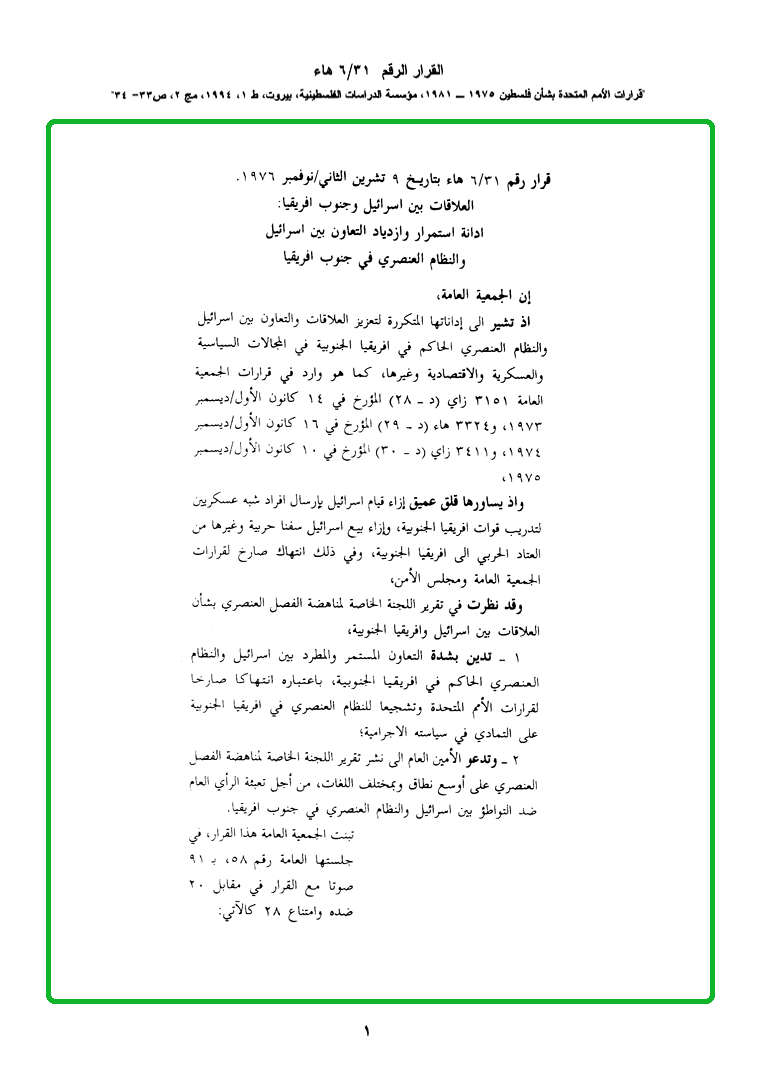 القرار الرقم ٦/٣١ هاء
"قرارات الأمم المتحدة بشأن فلسطين ١٩٧٥ ــ ١٩٨١، مؤسسة الدراسات الفلسطينية، بيروت، ط ١، ١٩٩٤، مج ٢، ص٣٣- ٣٤"
قرار رقم ٦/٣١ هاء بتاريخ ٩ تشرين الثاني/نوفمبر ١٩٧٦.
العلاقات بين اسرائيل وجنوب افريقيا:
ادانة استمرار وازدياد التعاون بين اسرائيل
والنظام العنصري في جنوب افريقيا
إن الجمعية العامة،
اذ تشير الى إداناتها المتكررة لتعزيز العلاقات والتعاون بين اسرائيل
والنظام العنصري الحاكم في افريقيا الجنوبية في المجالات السياسية
والعسكرية والاقتصادية وغيرها، كما هو وارد في قرارات الجمعية
العامة ٣١٥١ زاي (د ـ ٢٨) المؤرخ في ١٤ كانون الأول/ديسمبر
١٩٧٣، و٣٣٢٤ هاء (د ـ ٢٩) المؤرخ في ١٦ كانون الأول/ديسمبر
١٩٧٤، و٣٤١١ زاي (د ـ ٣٠) المؤرخ في ١٠ كانون الأول/ديسمبر
١٩٧٥،
واذ يساورها قلق عميق إزاء قيام اسرائيل بإرسال افراد شبه عسكريين
لتدريب قوات افريقيا الجنوبية، وإزاء بيع اسرائيل سفنا حربية وغيرها من
العتاد الحربي الى افريقيا الجنوبية، وفي ذلك انتهاك صارخ لقرارات
الجمعية العامة ومجلس الأمن،
وقد نظرت في تقرير اللجنة الخاصة لمناهضة الفصل العنصري بشأن
العلاقات بين اسرائيل وافريقيا الجنوبية،
١ ـ تدين بشدة التعاون المستمر والمطرد بين اسرائيل والنظام
العنصري الحاكم في افريقيا الجنوبية، باعتباره انتهاكا صارخا
لقرارات الأمم المتحدة وتشجيعا للنظام العنصري في افريقيا الجنوبية
على التمادي في سياسته الاجرامية؛
٢ ـ وتدعو الأمين العام الى نشر تقرير اللجنة الخاصة لمناهضة الفصل
العنصري على أوسع نطاق وبمختلف اللغات، من أجل تعبئة الرأي العام
ضد التواطؤ بين اسرائيل والنظام العنصري في جنوب افريقيا.
تبنت الجمعية العامة هذا القرار، في
جلستها العامة رقم ٥٨، بـ ٩١
صوتا مع القرار في مقابل ٢٠
ضده وامتناع ٢٨ كالآتي:
١